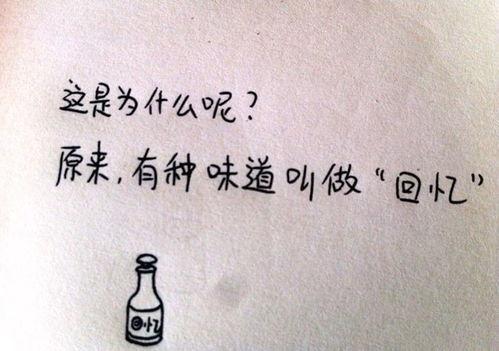 这是为什么呢？
原来,有种味道叫做“回忆”
回忆